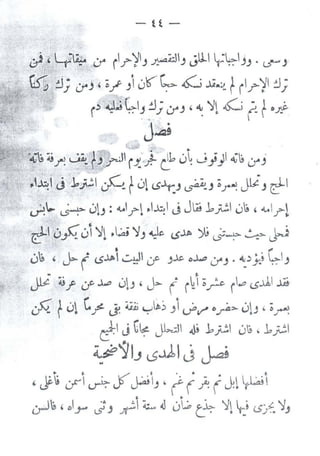 — ٤٤ —
وسعى . وواجباتها الحلق والتقصير والإحرام من ميقاتها ، فمن
ترك الإحرام لم ينعقد نسكه حجاً كان أو عمرة ، ومن ترك ركناً
غيره لم يتم نسكه إلا به ، ومن ترك واجباً فعليه دم
فصل
ومن فاته الوقوف بأن طلع فجر يوم النحر ولم يقف بعرفة فاته
الحج وتحلل بعمرة ويقضى ويهدى إن لم يكن اشترط فى ابتداء
إحرامه ، فان اشترط فقال فى ابتداء إحرامه : وإن حبسنى حابس
فمحلى حيث حبستنى فلا هدى عليه ولا قضاء إلا أن يكون الحج
واجباً فيؤديه . ومن صده عدو عن البيت أهدى ثم حل ، فان
فقد الهدى صام عشرة أيام ثم حل ، وإن صد عن عرفة تحلل
بعمرة ، وإن حضره مرض أو ذهاب نفقة بقى محرماً إن لم يكن
اشترط ، فان اشترط فله التحلل مجاناً فى الجميع
فصل فى الهدى والأضحية
أفضلها إبل ثم بقر ثم غنم ، وأفضل كل جنس أسمن فأغلى ،
ولا يجزى فيها إلا جذع ضأن له ستة أشهر وثنى سواه ، فالسن